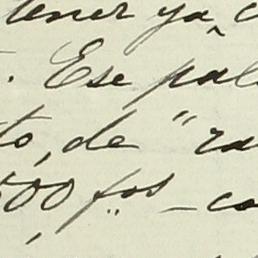 tener ya c
. Ese pal
to, de "ra
500 fos - co